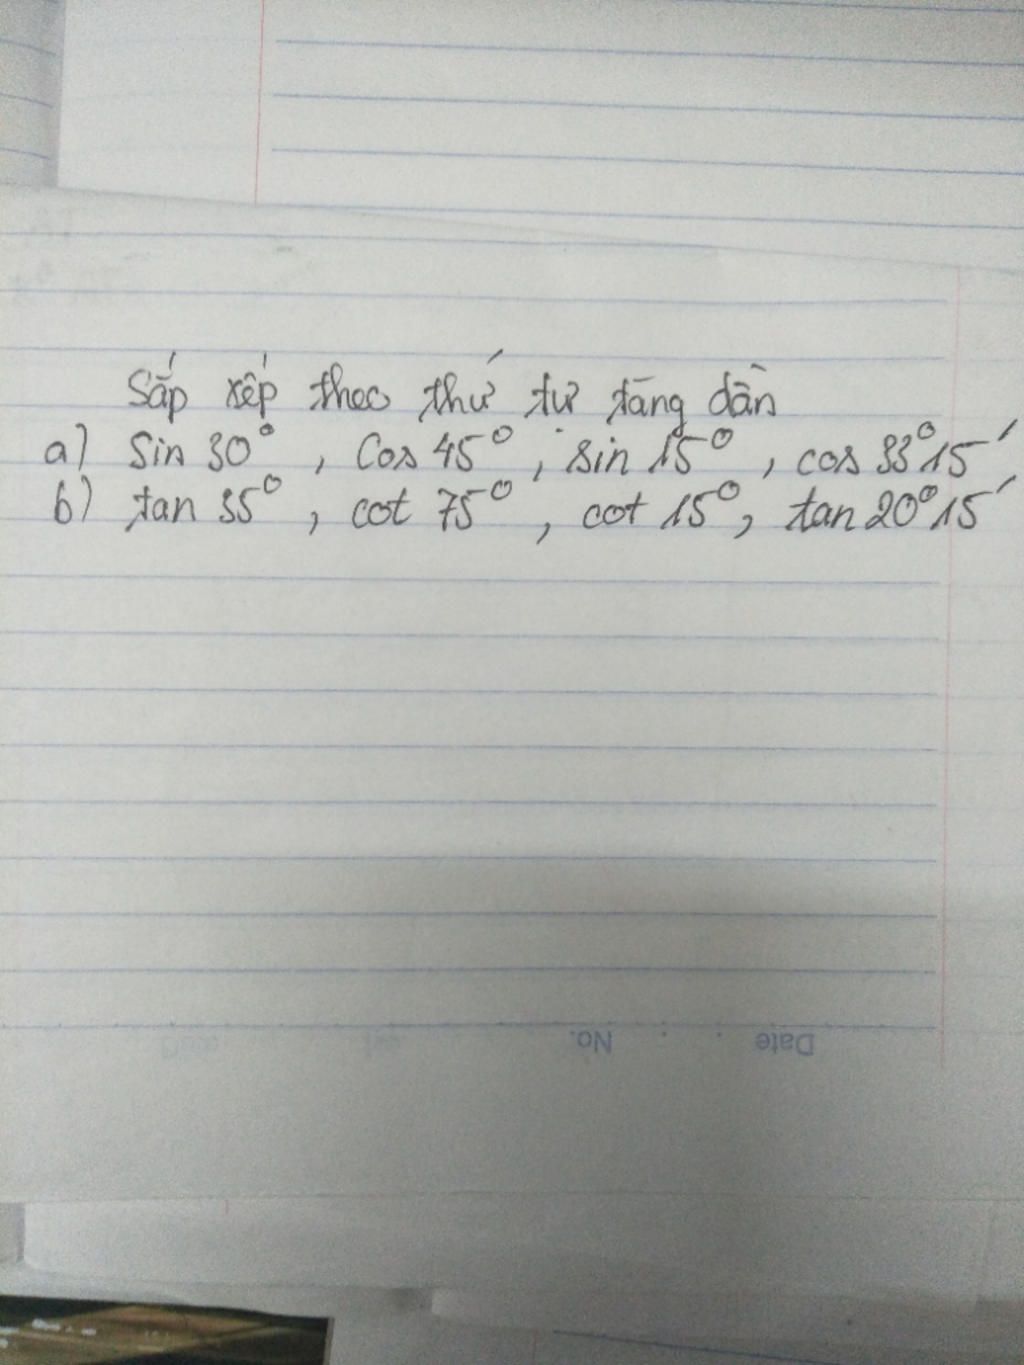 Sắp xếp theo thứ tự tăng dần
a) Sin 30° , Cos 45° , sin 15° , cos 33°15'
b) tan 35° , cot 75° , cot 15° , tan 20°15'
Date : : No.